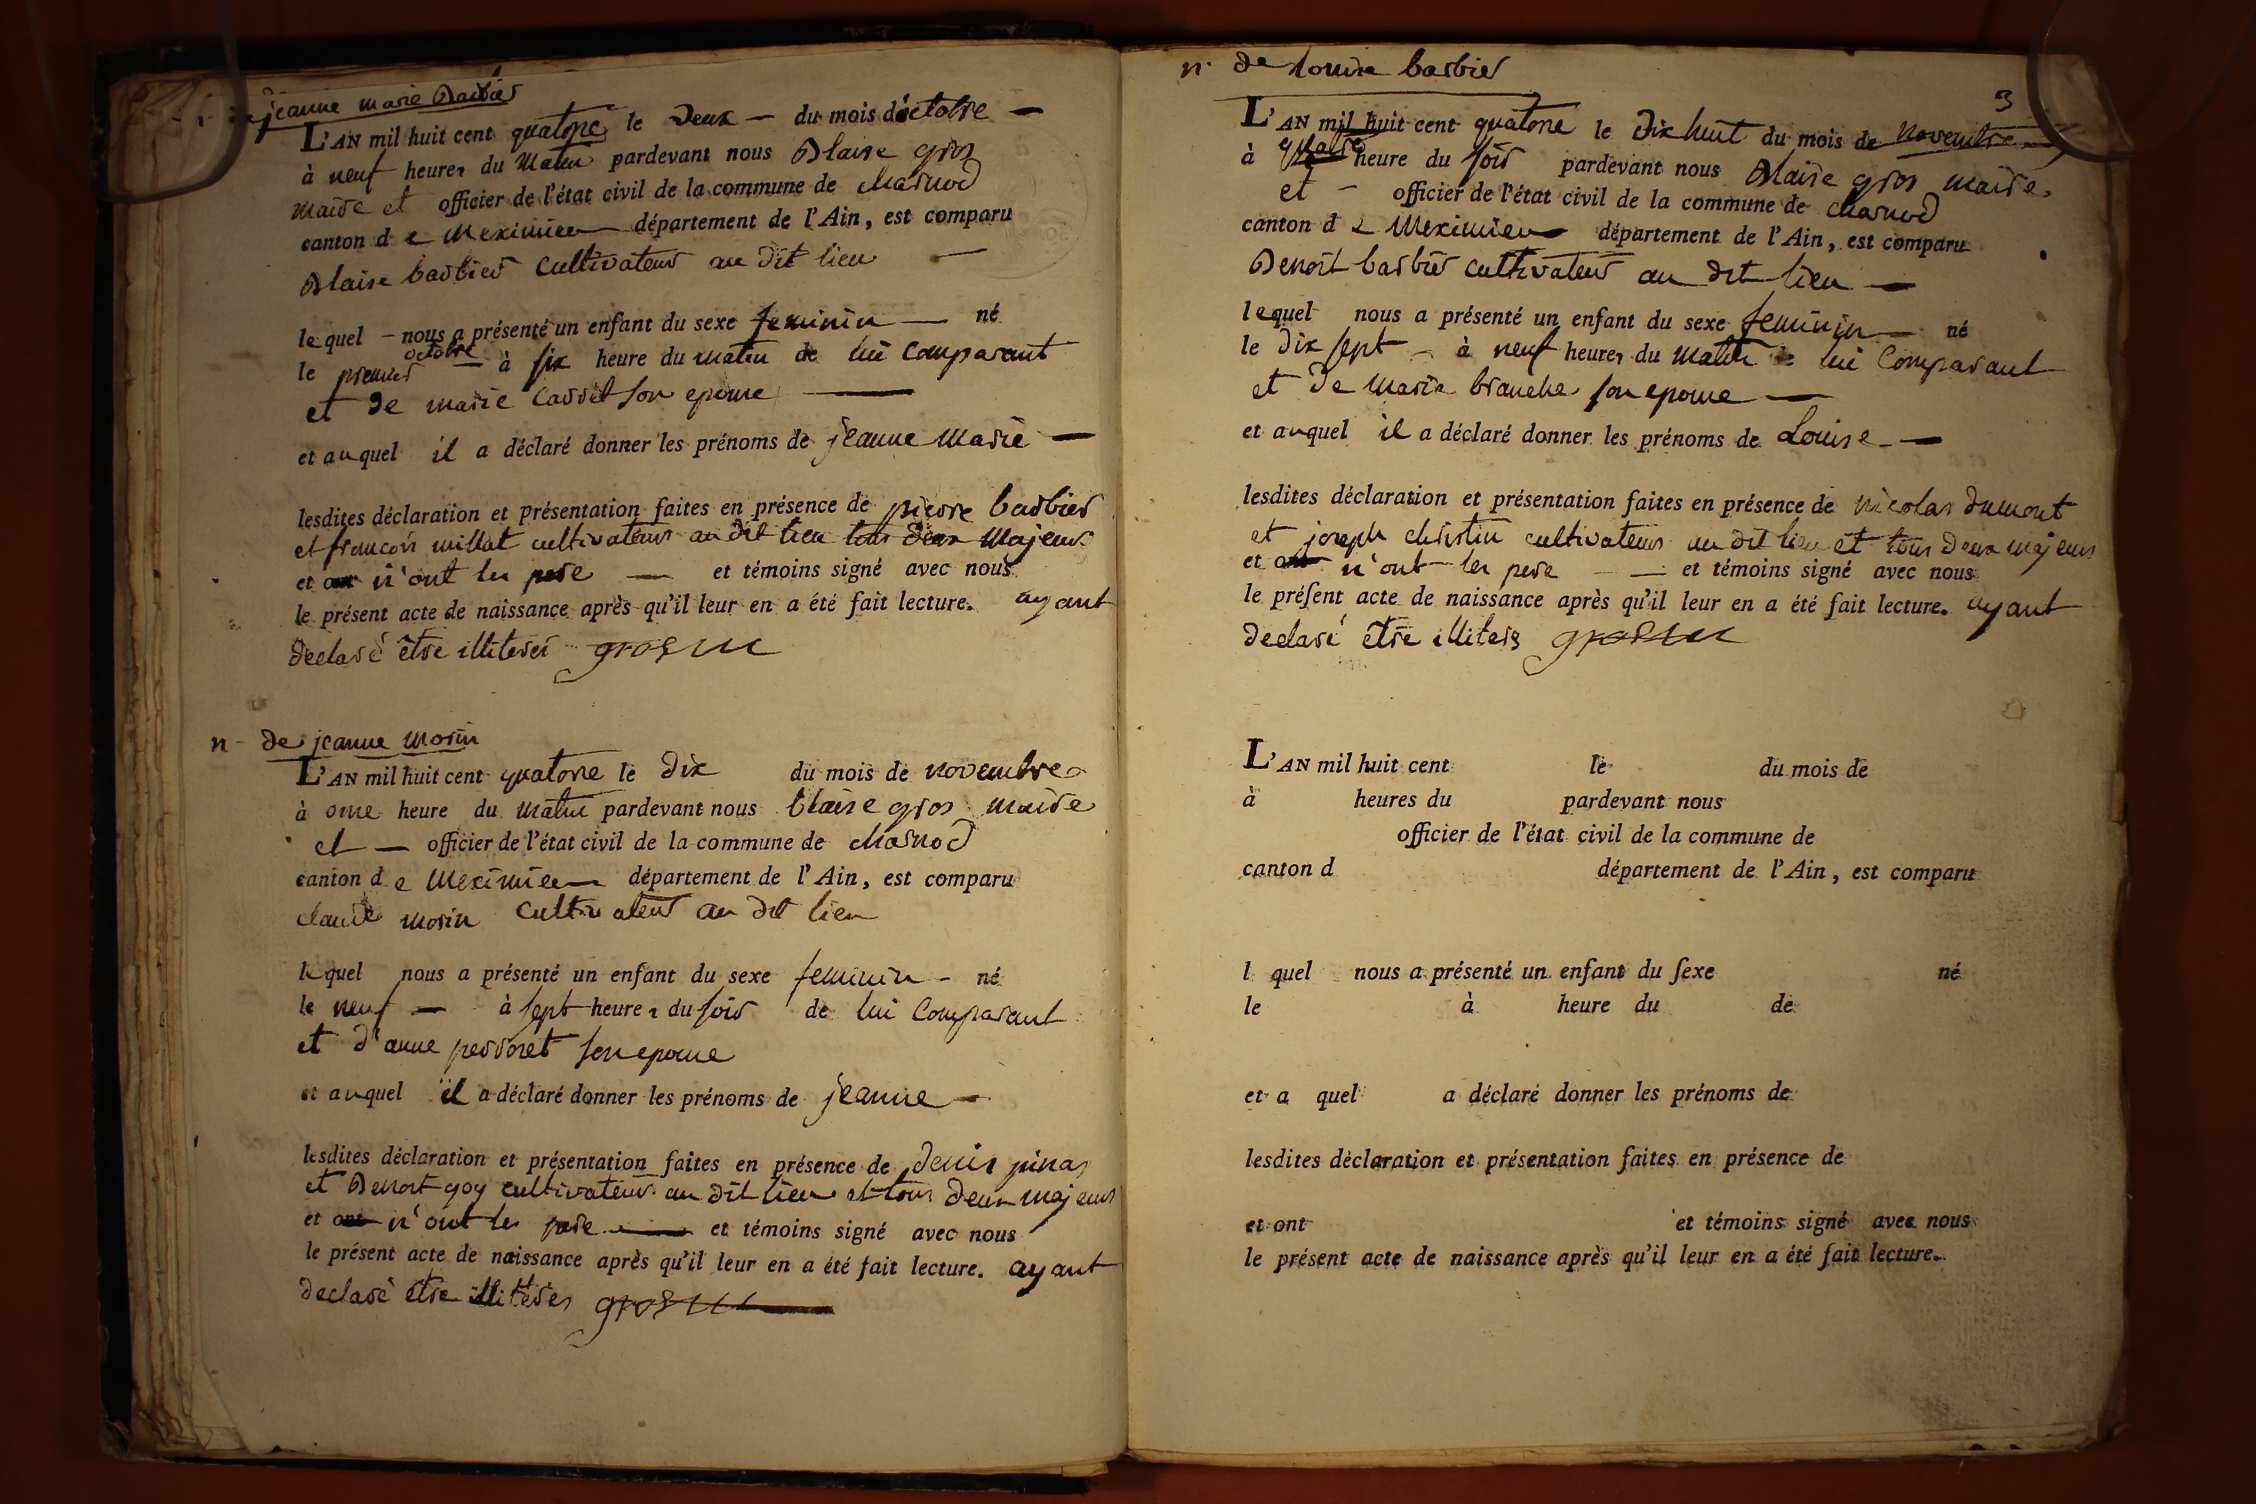 n. de jeanne marie Barbier
L'AN mil huit cent quatorze le deux — du mois d'octobre —
à neuf heures du matin pardevant nous Blaise gros
maire et officier de l'état civil de la commune de charnod
canton d e Meximieu — département de l'Ain, est comparu
Blaise barbier cultivateur au dit lieu —
lequel — nous a présenté un enfant du sexe feminin — né
le premier octobre — à six heure du matin de lui Comparant
et de marie Carret son epouse —
et auquel il a déclaré donner les prénoms de jeanne Marie —
lesdites déclaration et présentation faites en présence de pierre barbier
et françois millat cultivateurs au dit lieu tous deux Majeurs
et ont n'ont les pere — et témoins signé avec nous
le présent acte de naissance après qu'il leur en a été fait lecture. ayant
declaré être illiterés gros m
n - de jeanne morin
L'AN mil huit cent quatorze le dix du mois de novembre
à onze heure du matin pardevant nous blaise gros maire
et — officier de l'état civil de la commune de charnod
canton d e Meximieu département de l'Ain, est comparu
claude morin cultivateur au dit lieu
lequel nous a présenté un enfant du sexe feminin - né
le neuf — à sept heures du soir de lui Comparant
et d'anne perroret son epouse
et auquel il a déclaré donner les prénoms de jeanne —
lesdites déclaration et présentation faites en présence de denis pinas
et Benoit goy cultivateurs au dit lieu et tous deux majeurs
et ont n'ont les pere — et témoins signé avec nous
le présent acte de naissance après qu'il leur en a été fait lecture. ayant
declaré être illiterés gros m
n. de Louise barbier
3
L'AN mil huit cent quatorze le dix huit du mois de novembre —
à quatre heure du soir pardevant nous Blaise gros maire
et — officier de l'état civil de la commune de charnod
canton d e Meximieu département de l'Ain, est comparu
Benoit barbier cultivateur au dit lieu —
lequel nous a présenté un enfant du sexe feminin — né
le dix sept — à neuf heures du matin de lui Comparant
et de Marie branche son epouse —
et auquel il a déclaré donner les prénoms de Louise —
lesdites déclaration et présentation faites en présence de nicolas dumont
et joseph christin cultivateurs au dit lieu et tous deux majeurs
et ont n'ont les pere — et témoins signé avec nous
le préſent acte de naissance après qu'il leur en a été fait lecture. ayant
declaré être illiterés gros m
L'AN mil huit cent le du mois de
à heures du pardevant nous
officier de l'état civil de la commune de
canton d département de l'Ain, est comparu
l quel nous a présenté un enfant du ſexe né
le à heure du de
et a quel a déclaré donner les prénoms de
lesdites déclaration et présentation faites en présence de
et ont et témoins signé avec nous
le présent acte de naissance après qu'il leur en a été fait lecture.